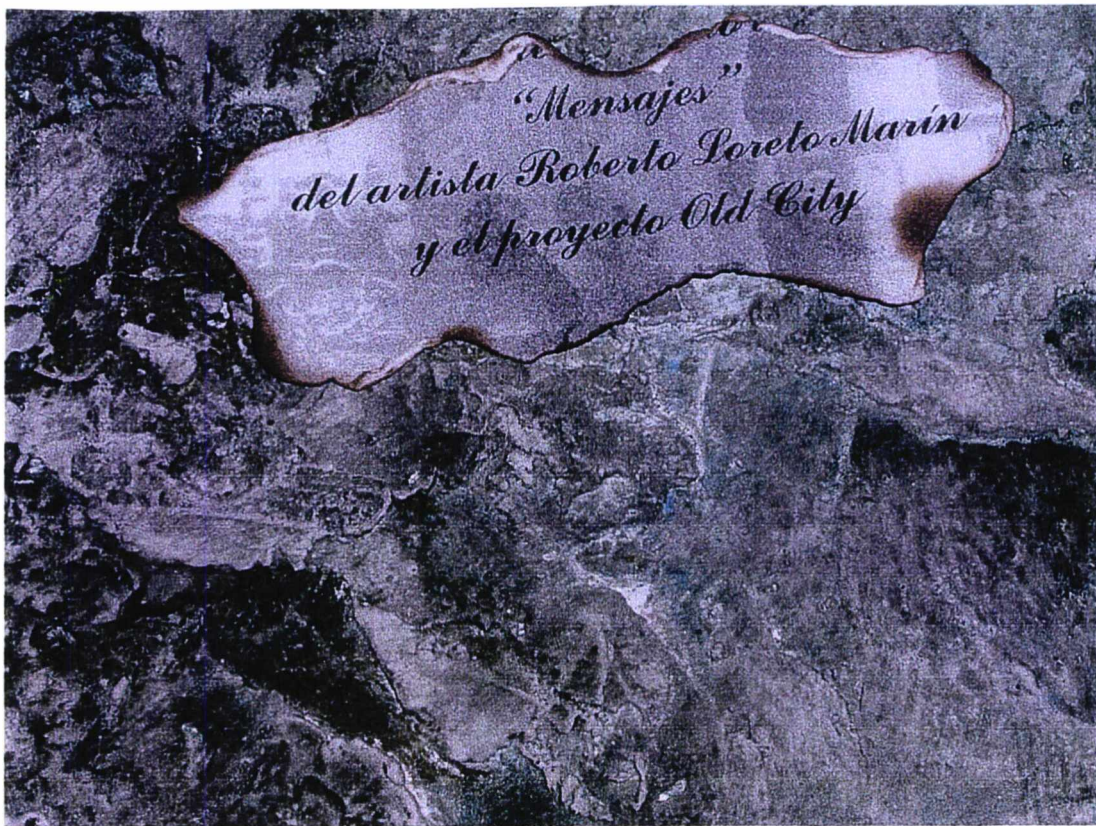 “Mensajes”
del artista Roberto Loreto Marín
y el proyecto Old City